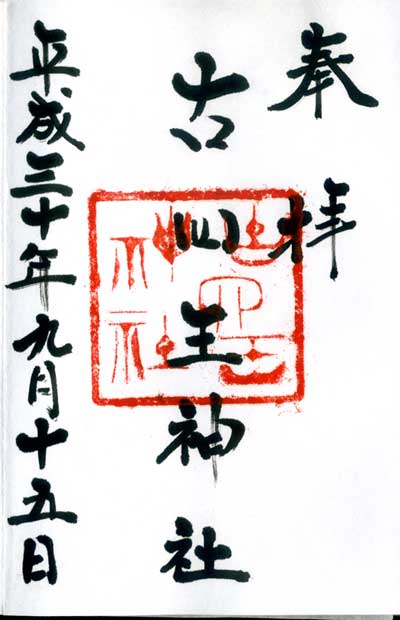 奉拝
古四王神社
平成三十年九月十五日